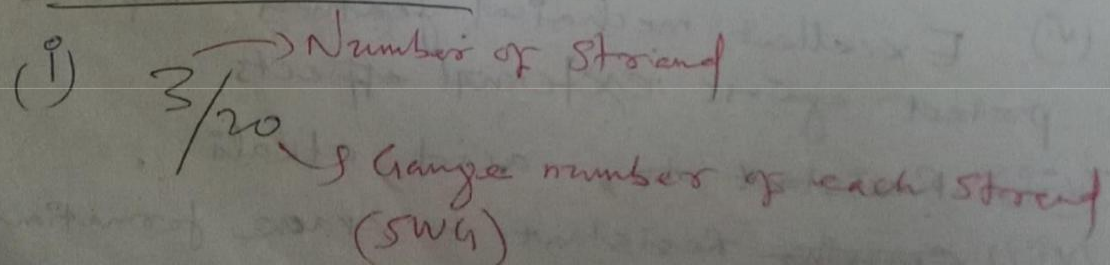 (i) 3/20 → Number of Strand
Gauge number of each Strand
(SWG)